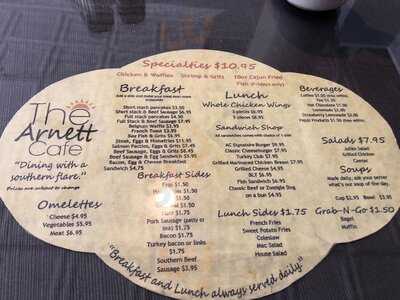 Specialties $10.95
Chicken & Waffles Shrimp & Grits 10oz Cajun Fried
Fish (Fridays only)
The
Arnett
Cafe
"Dining with a
southern flare."
Prices are subject to change
Omelettes
Cheese $4.95
Vegetables $5.95
Meat $6.95
Breakfast
Short stack pancakes $3.50
Short stack & Beef Sausage $6.95
Full stack pancakes $4.50
Full Stack & Beef Sausage $7.95
Belgian Waffle $3.95
French Toast $3.95
Bay Fish & Grits $6.95
Steak, Eggs & Homefries $11.95
Salmon Patties, Eggs & Grits $7.45
Beef Sausage, Eggs & Grits $6.45
Beef Sausage & Egg Sandwich $3.95
Bacon, Egg & Cheese Breakfast
Sandwich $4.75
Breakfast Sides
Egg $1.50
$1.50
$1.50
$1.75
Pork Sausage (patty or
link) $1.75
Bacon $1.75
Turkey bacon or links
$1.75
Southern Beef
Sausage $3.95
Lunch
Whole Chicken Wings
3 pieces $8.95
Sandwich Shop
All sandwiches come with choice of 1 side
AG Signature Burger $9.95
Classic Cheeseburger $7.95
Turkey Club $7.95
Grilled Marinated Chicken Breast $7.95
Grilled Cheese $4.95
BLT $6.95
Fish Sandwich $6.95
Classic Beef or Zweigle Dog
on a bun $4.95
Lunch Sides $1.75
French Fries
Sweet Potato Fries
Coleslaw
Mac Salad
House Salad
Beverages
Tea $1.50
Hot Chocolate $1.50
Lemonade $1.50
Salads $7.95
Julien Salad
Grilled Chicken
Caesar
Soups
Made daily, ask your server
what's our soup of the day.
Cup $2.95 Bowl $3.95
Grab-N-Go $1.50
Bagel
Muffin
"Breakfast and Lunch always served daily"